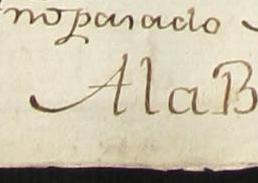 no parado
A la B